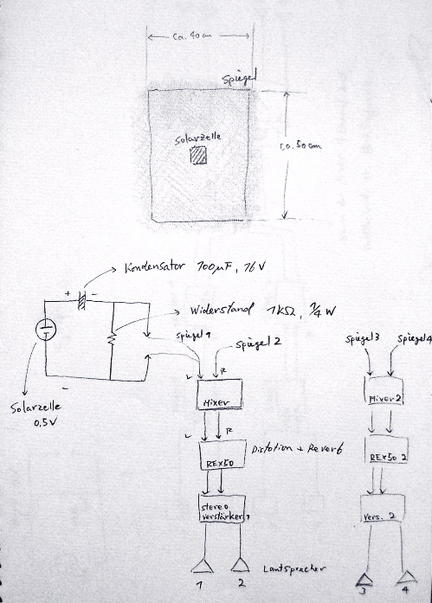 ca. 40 cm
Spiegel
Solarzelle
ca. 50 cm
Kondensator 100µF, 16V
+ -
Widerstand 1kΩ, 1/4 W
Spiegel 1
Spiegel 2
Spiegel 3
Spiegel 4
-
Solarzelle
0,5V
L R
Mixer
Mixer 2
L R
REX50
Distotion + Reverb
REX50 2
stereo
verstärker 1
Vers. 2
Lautsprecher
1 2
3 4